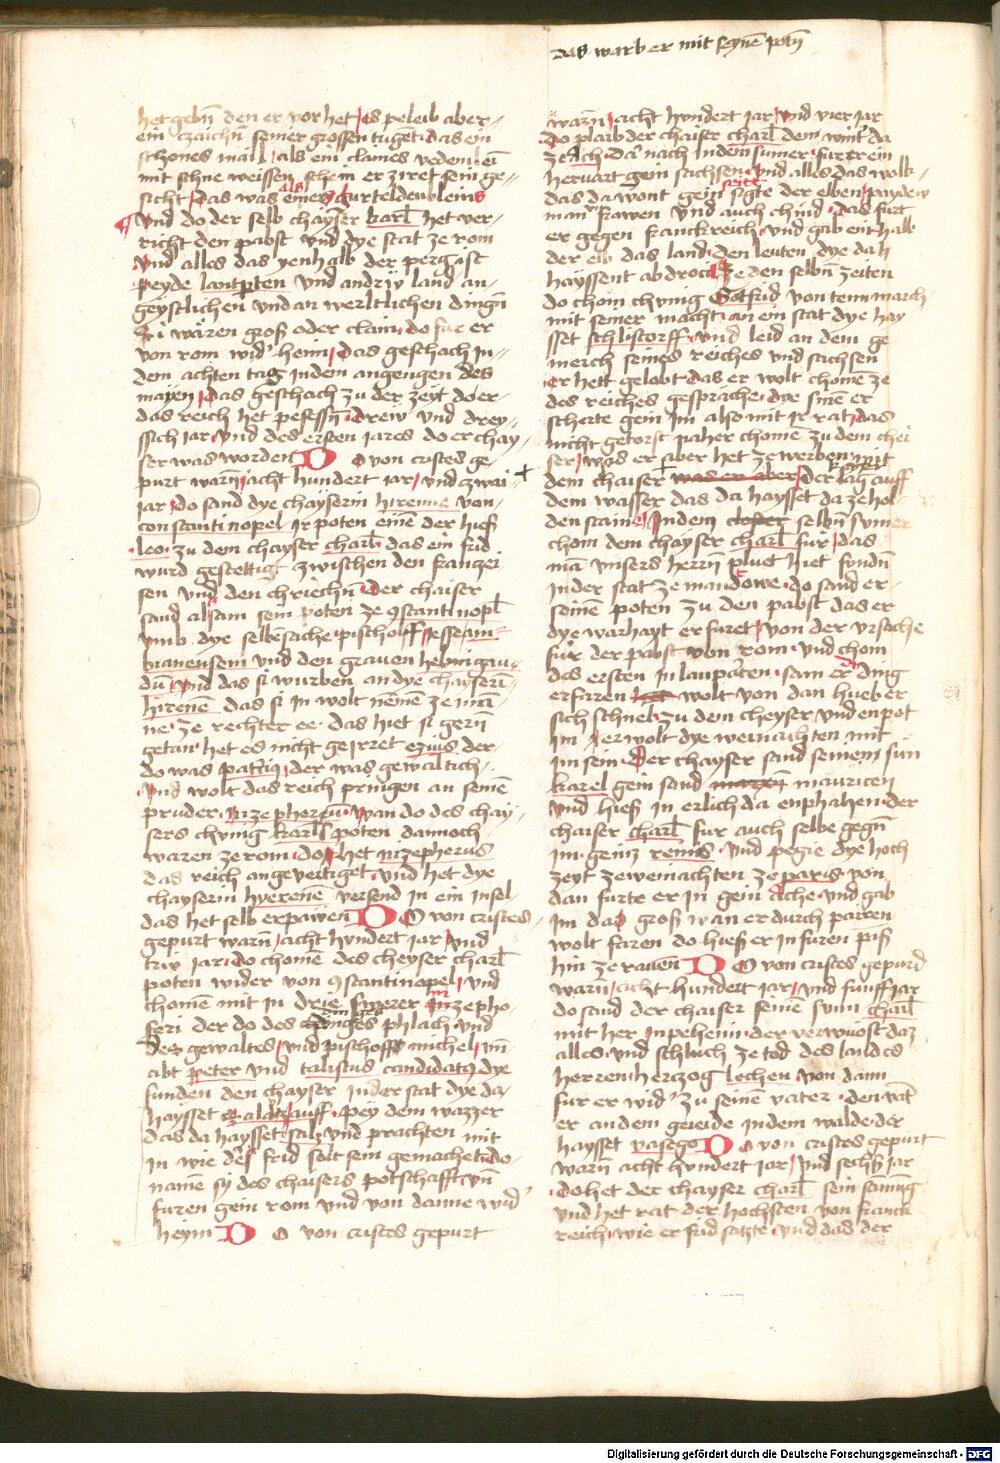 das warb er mit seynē potē
het gebn̄ den er vor het es peleib aber
ein zaichn̄ seiner grossen tuget das ein
schones mall als ein claines vedemlein
mit schne weissen schein er ziret sein ge-
sicht das was als eines gurteldenleins
Und do der selb chayser karl het ver-
richt den pabst und dye stat ze rom
und alles das yenhalb der perg ist
peyde lantpten und andriv land an
geystlichen und an werltlichen dingn̄
Si wären groß oder clain do fur er
von rom wid' heim das geschach in
dem achten tag in dem angengen des
mayen das geschach zu der zeyt do er
das reich het pesessn̄ drew und drey-
ssich jar und des ersten jares do er chay-
ser was worden D O von cristes ge-
purt warn̄ acht hundert jar und zwai
jar do sand dye chayserin hirenne von
constantinopel ir poten einē der hieß
leo zu dem chayser charl das ein frid
wurd gestettigt zwischen den franczei
sen und den chriechn̄ der chaiser
sand alsam sein poten ze 9stantinopl
umb dye selbe sache pischoff Jesse am-
bianensem und den graven helmigau-
dū und das si wurben an dye chayseri-
hirenē das si in wolt nemē ze mā-
ne ze rechter ee das hiet si gern̄
getan het es nicht geirret ezius der
do was patrius der was gewaltich
und wolt das reich pringen an seinē
pruder nizephorū wan do des chay-
sers chunig karls poten dannoch
waren ze rom do het nizepherus
das reich angevertiget und het dye
chayserin hyerenē versend in ein insel
das het selb erpawen D O von cristes
gepurt warn̄ acht hundert jar und
triv jar do chomē des cheyser charl
poten wider von 9stantinopel und
chomen mit in drie swerer nizepho-
fori der do des chuniges phlach und
des gewaltes und pischoff michel un̄
abt peter und talistus candidatus dye
funden den chayser in der stat dye da
haysset salatzauff pey dem wazzer
das da haysset salz und prachten mit
in wie der frid solt sein gemachet do
namē sy des chaisers potschafft un̄
furen gein rom und von danne wid'
heym D O von cristes gepurt
warn̄ acht hundert jar und vier jar
do plaib der chaiser charl dem wint' da
ze ach da nach in dem sumer fur er ein
hervart gein sachsen und alles das volk
das da wont gein seite sigte der elben payde
man frawen und auch chind das furt
er gegen franckreich und gab enthalb
der elb das land den leuten dye da
hayssent abdroci Ze den selbn̄ zeiten
do chom chunig Gotfrid von tenmarch
mit seiner macht an ein stat dye hay
sset schlistorff und leid an dem ge
merch seines reiches und sachsen
er hett gelobt das er wolt chomē ze
des reiches gesprache dye sinē er
scherte gein im also mit ir rat das
nicht getorst naher chomē zu dem chei
ser was er aber het ze werben mit
dem chaiser was er aber der lag auff
dem wasser das da haysset da ze hol-
den stain In dem selbn̄ sumer
chom dem chayser charl fur das
mā unsers herrn̄ plut hiet fundn̄
in der stat ze mandowe do sand er
seinē poten zu den pabst das er
dye warhayt erfuret von der ursache
fur der pabst von rom und chom
des ersten in lanparten sam er dy ding
erfaren wolt von dan hueb er
sich schnel zu dem cheyser und enpot
im er wolt dye weinachten mit
im sein Der chayser sand seinem sun
karel gein sand mauricen
und hieß in erlich da enphahen der
chaiser charl fur auch selbe gegn̄
im geinz remis und pegie dye hoch
zeyt ze weinachten ze paris von
dan furte er in gein ache und gab
im das groß wan er durch parren
wolt faren do hieß er in furen piß
hin ze raven D O von cristes gepurd
warn̄ acht hundert jar und funff jar
do sand der chaiser seinē sunn charl
mit her in pehenn der verwuost daz
alles und schluch ze tod des landes
herren herczog lechen von dann
fur er wid' zu seinen vater den vat'
er an dem geieide in dem walde der
haysset vasego D O von cristes gepurt
warn̄ acht hundert jar und sechs jar
do het der chayser charl sein samūg
und het rat der hochsten von franck
reich wie er frid satzte und das der
Digitalisierung gefördert durch die Deutsche Forschungsgemeinschaft - DFG